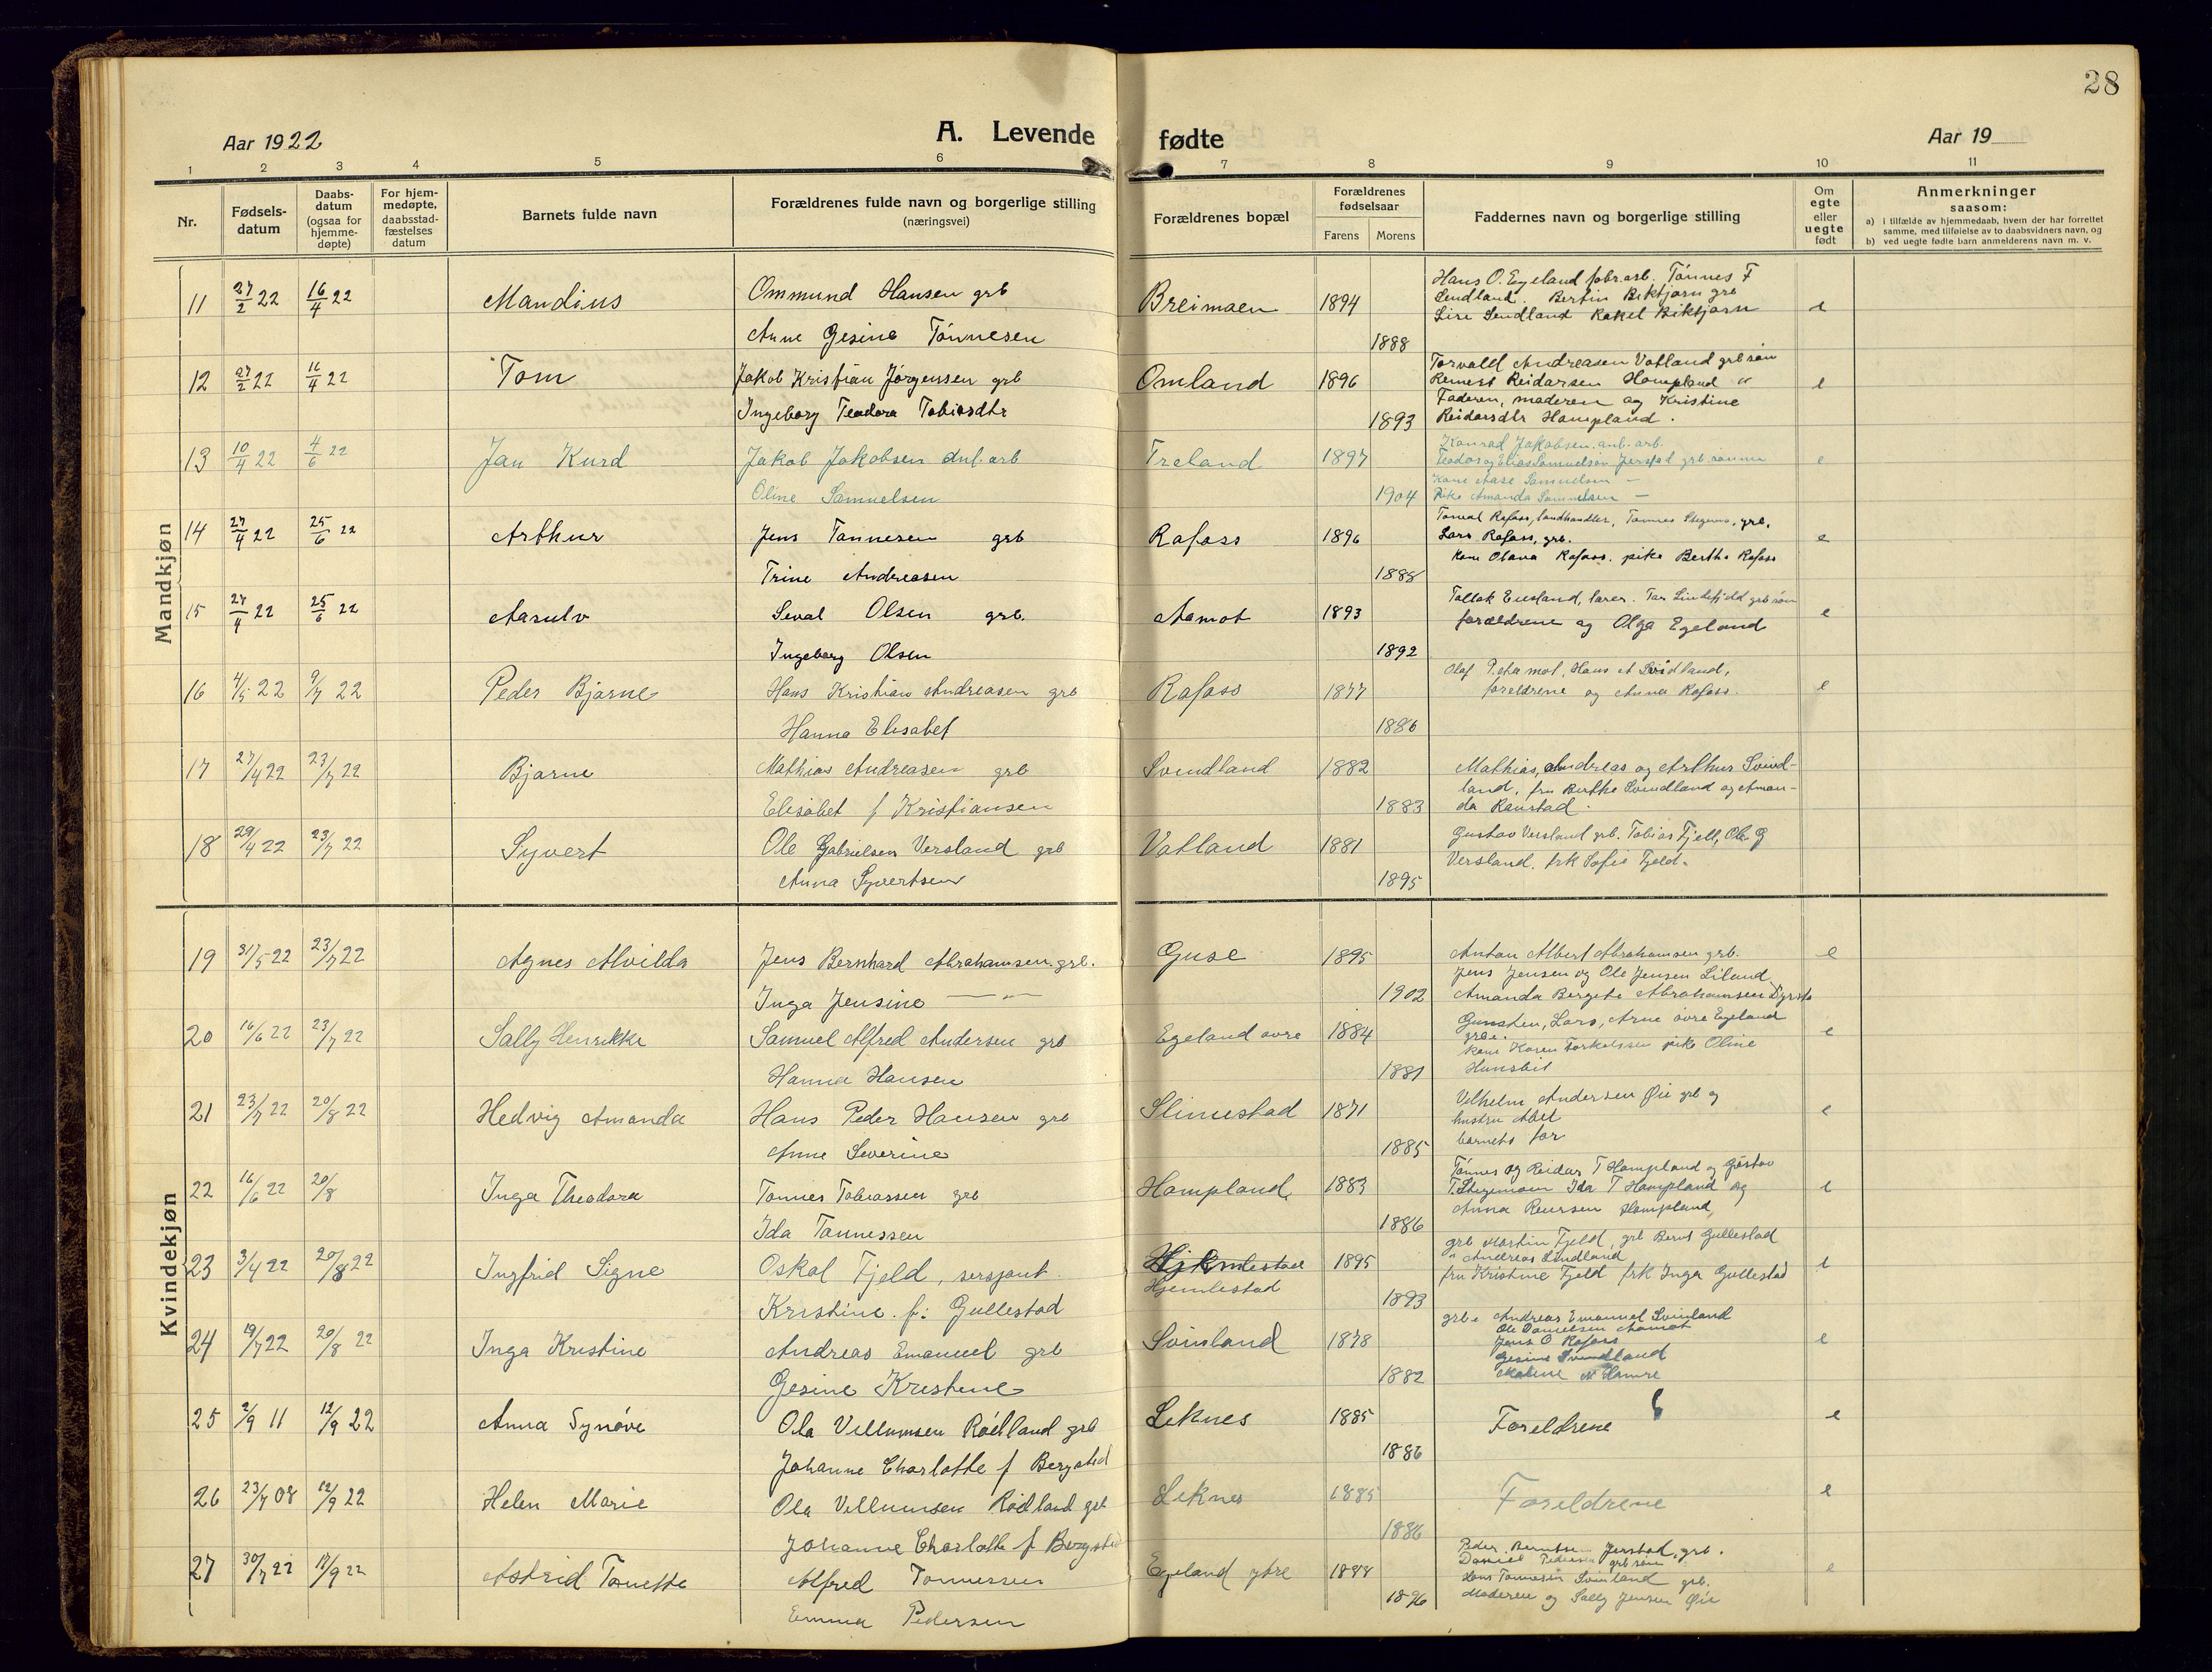 28
Aar 1922
A. Levende
fødte
Aar 19
1 2 3 4 5 6 7 8 9 10 11
Nr.
Fødsels-
datum
Daabs-
datum
(ogsaa for
hjemme-
døpte)
For hjem-
medøpte,
daabsstad-
fæstelses
datum
Barnets fulde navn
Forældrenes fulde navn og borgerlige stilling
(næringsvei)
Forældrenes bopæl
Forældrenes
fødselsaar
Farens Morens
Faddernes navn og borgerlige stilling
Om
egte
eller
uegte
født
Anmerkninger
saasom:
a) i tilfælde av hjemmedaab, hvem der har forrettet
samme, med tilføielse av to daabsvidners navn, og
b) ved uegte fødte barn anmelderens navn m. v.
Mandkjøn
11 27/2 22 16/4 22 Mandius Ommund Hansen grb Breimoen 1894 e
Anne Gesine Tønnesen 1888
Hans O. Egeland fabr. arb. Tønnes F
Sendland. Bertin Birktjørn grb
Lise Sendland Rakel Birktjørn
12 27/2 22 16/4 22 Tom Jakob Kristian Jørgensen grb Omland 1896 e
Ingeborg Teodora Tobiasdtr 1893
Torvald Andreasen Vatland grb søn
Reinert Reidarsen Hompland "
Faderen, moderen og Kristine
Reidarsdtr Hompland.
13 10/4 22 4/6 22 Jan Kurd Jakob Jakobsen anl. arb Treland 1897 e
Oline Samuelsen 1904
Konrad Jakobsen anl. arb.
Teodor og Elias Samuelsøn Jerstad grb. sønner
Kone Aase Samuelsen —
Pike Amanda Samuelsen —
14 27/4 22 25/6 22 Arthur Jens Tønnesen grb Rafoss 1896 e
Trine Andreasen 1888
Tomal Rafoss, landhandler, Tønnes Stegemo, grb.
Lars Rafoss, grb.
kone Olava Rafoss. pike Berthe Rafoss
15 27/4 22 25/6 22 Aasulv Seval Olsen grb. Aamot 1893 e
Ingeborg Olsen 1892
Tollak Eusland, lærer. Tor Lindefjeld grb søn
forældrene og Olga Egeland
16 4/5 22 9/7 22 Peder Bjarne Hans Kristian Andreasen grb Rafoss 1877 e
Hanna Elisabet 1886
Olaf P. Aamot, Hans A Svidland,
foreldrene og Anna Rafoss.
17 27/4 22 23/7 22 Bjarne Mathias Andreasen grb Svindland 1882
Elisabet f Kristiansen 1883
Mathias, Andreas og Arthur Svind-
land, fru Berthe Svindland og Aman-
da Raustad.
18 29/4 22 23/7 22 Syvert Ole Gabrielsen Versland grb Vatland 1881
Anna Syvertsen 1895
Gustav Versland grb. Tobias Fjell, Ole G
Versland. frk Sofie Fjeld.
Kvindekjøn
19 31/5 22 23/7 22 Agnes Alvilda Jens Bernhard Abrahamsen grb. Guse 1895 e
Inga Jensine — " — 1902
Anton Albert Abrahamsen grb.
Jens Jensen og Ole Jensen Liland
Amanda Bergete Abrahamsen
20 16/6 22 23/7 22 Sally Henrikke Samuel Alfred Andersen grb Egeland øvre 1884 e
Hanna Hansen 1881
Gunsten, Lars, Arne øvre Egeland
grbe.
kone Karen Torkelssen pike Oline
Hunsbit
21 23/7 22 20/8 22 Hedvig Amanda Hans Peder Hansen grb Slimestad 1871 e
Anne Severine 1885
Vilhelm Andersen Øie grb og
hustru Abel
barnets far
22 16/6 22 20/8 Inga Theodora Tønnes Tobiassen grb Hompland 1883 e
Ida Tønnessen 1886
Tønnes og Reidar T Hompland og Gustav
T. Stegemoen Ida T Hompland og
Anna Reiersen Hompland,
23 3/4 22 20/8 22 Ingfrid Signe Oskal Fjeld, sersjant. 1895 e
Kristine. f: Gullestad Hjemlestad 1893
grb Martin Fjeld, grb Bernt Gullestad
" Andreas Lindland
fru Kristine Fjeld frk Inga Gullestad
24 19/7 22 20/8 22 Inga Kristine Andreas Emanuel grb Svinland 1878 e
Gesine Kristine 1882
grbe Andreas Emanuel Svinland
Ole Danielsen Aamot
Jens O Rafoss
Gesine Svindland
Malene N Hamre
25 2/9 11 12/9 22 Anna Synøve Ola Villumsen Rødland grb Leknes 1885 Foreldrene e
Johanne Charlotte f Bergstad 1886
26 23/7 08 12/9 22 Helen Marie Ola Villumsen Rødland grb Leknes 1885 Foreldrene e
Johanne Charlotte f Bergsted 1886
27 30/7 22 17/9 22 Astrid Tonette Alfred Tønnessen Egeland ytre 1888 e
Emma Pedersen 1896
Peder Berntsen Jerstad, grb.
Daniel Pedersen grb søn
Hans Tønnesen Svinland grb.
Moderen og Sally Jensen Øie